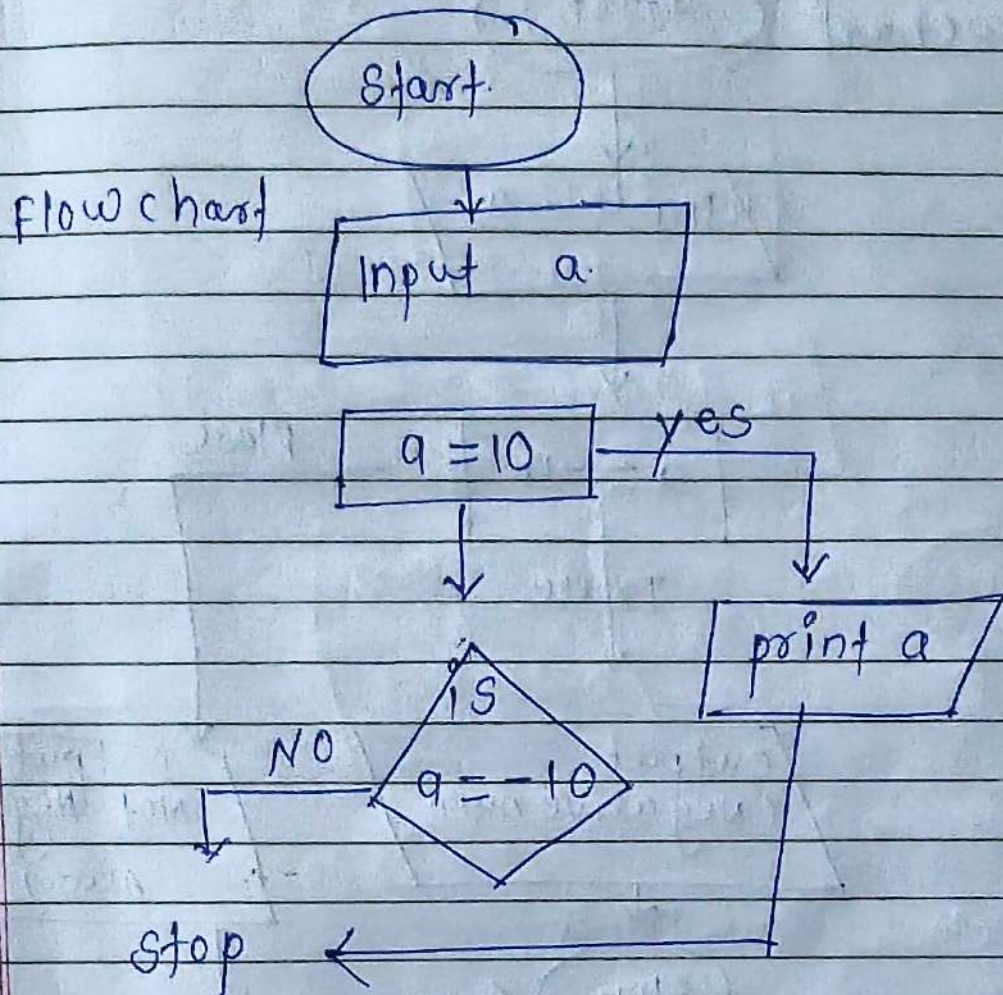 Start.
Flow chart
Input a.
a = 10
yes
print a
is
NO
a = -10
Stop